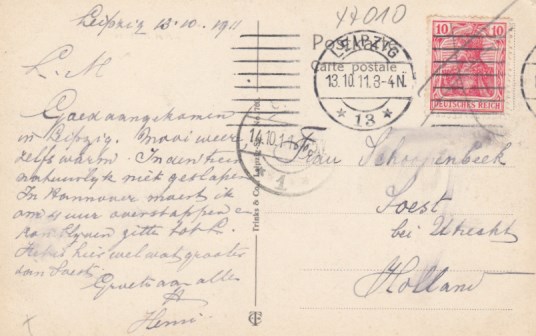 Leipzig 13.10.1911
L. M
Goed aangekomen
in Leipzig. Mooi weer,
zelfs warm. In den trein
natuurlijk niet geslapen
In Hannover moest ik
om 4 uur overstappen en
kon blyven zitten tot L.
Het is hier wel wat grooter
dan Soest.
Groeten aan allen
Henri
47010
Postkarte
Carte postale
LEIPZIG
13.10.11.3-4N.
* 13 *
10 10
DEUTSCHES REICH
14.10.1
* 1 *
Trinks & Co., Leipzig
Frau Schoopenbeek
Soest
bei Utrecht
Holland